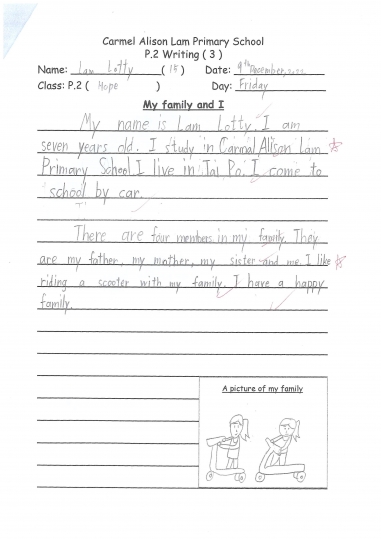 Carmel Alison Lam Primary School
P.2 Writing ( 3 )
Name: Lam Lotty ( 15 ) Date: 9th December, 2022
Class: P.2 ( Hope ) Day: Friday
My family and I
My name is Lam Lotty. I am
seven years old. I study in Carmal Alison Lam
Primary School. I live in Tai Po. I come to
school by car.
There are four members in my family. They
are my father, my mother, my sister and me. I like
riding a scooter with my family. I have a happy
family.
A picture of my family